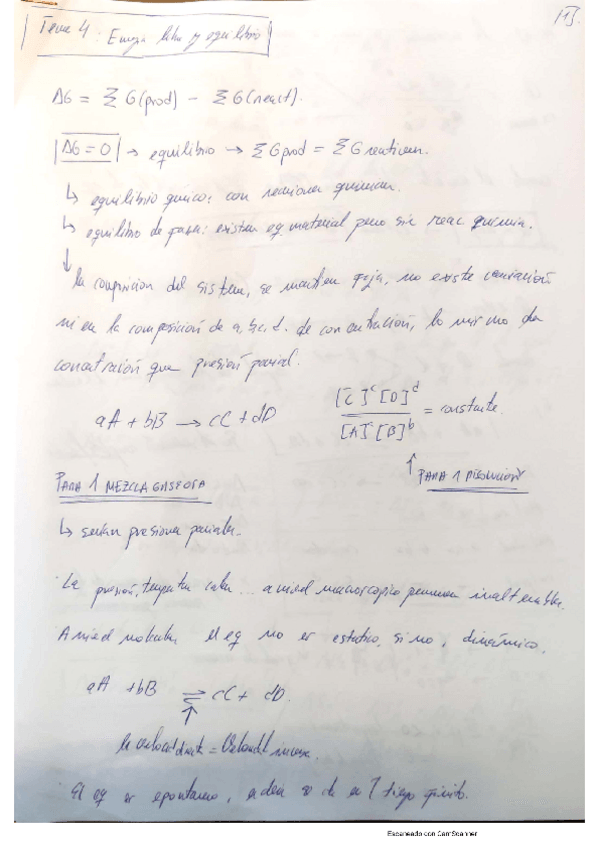 113.
Tema 4: Energía libre y equilibrio
ΔG = Σ G(prod) - Σ G(react).
|ΔG = 0| → equilibrio → Σ Gprod = Σ Greactivos.
↳ equilibrio químico: con reacciones químicas.
↳ equilibrio de fases: existen eq material pero sin reac química.
↓ la composición del sistema, se mantien fija, no existe variación
ni en la composición de a, b, c, d. de concentración, lo mismo da
concentración que presión parcial.
aA + bB → cC + dD [C]^c [D]^d / [A]^a [B]^b = constante.
↑ PARA 1 DISOLUCIÓN
PARA 1 MEZCLA GASEOSA
↳ serían presiones parciales.
La presión, temperatura, calor... a nivel macroscópico permanecen inalterables.
A nivel molecular el eq no es estático, si no, dinámico.
aA + bB ⇌ cC + dD.
↑
la velocidad directa = Velocidad inversa.
El eq es espontaneo, es decir se da en 1 tiempo finito.
Escaneado con CamScanner